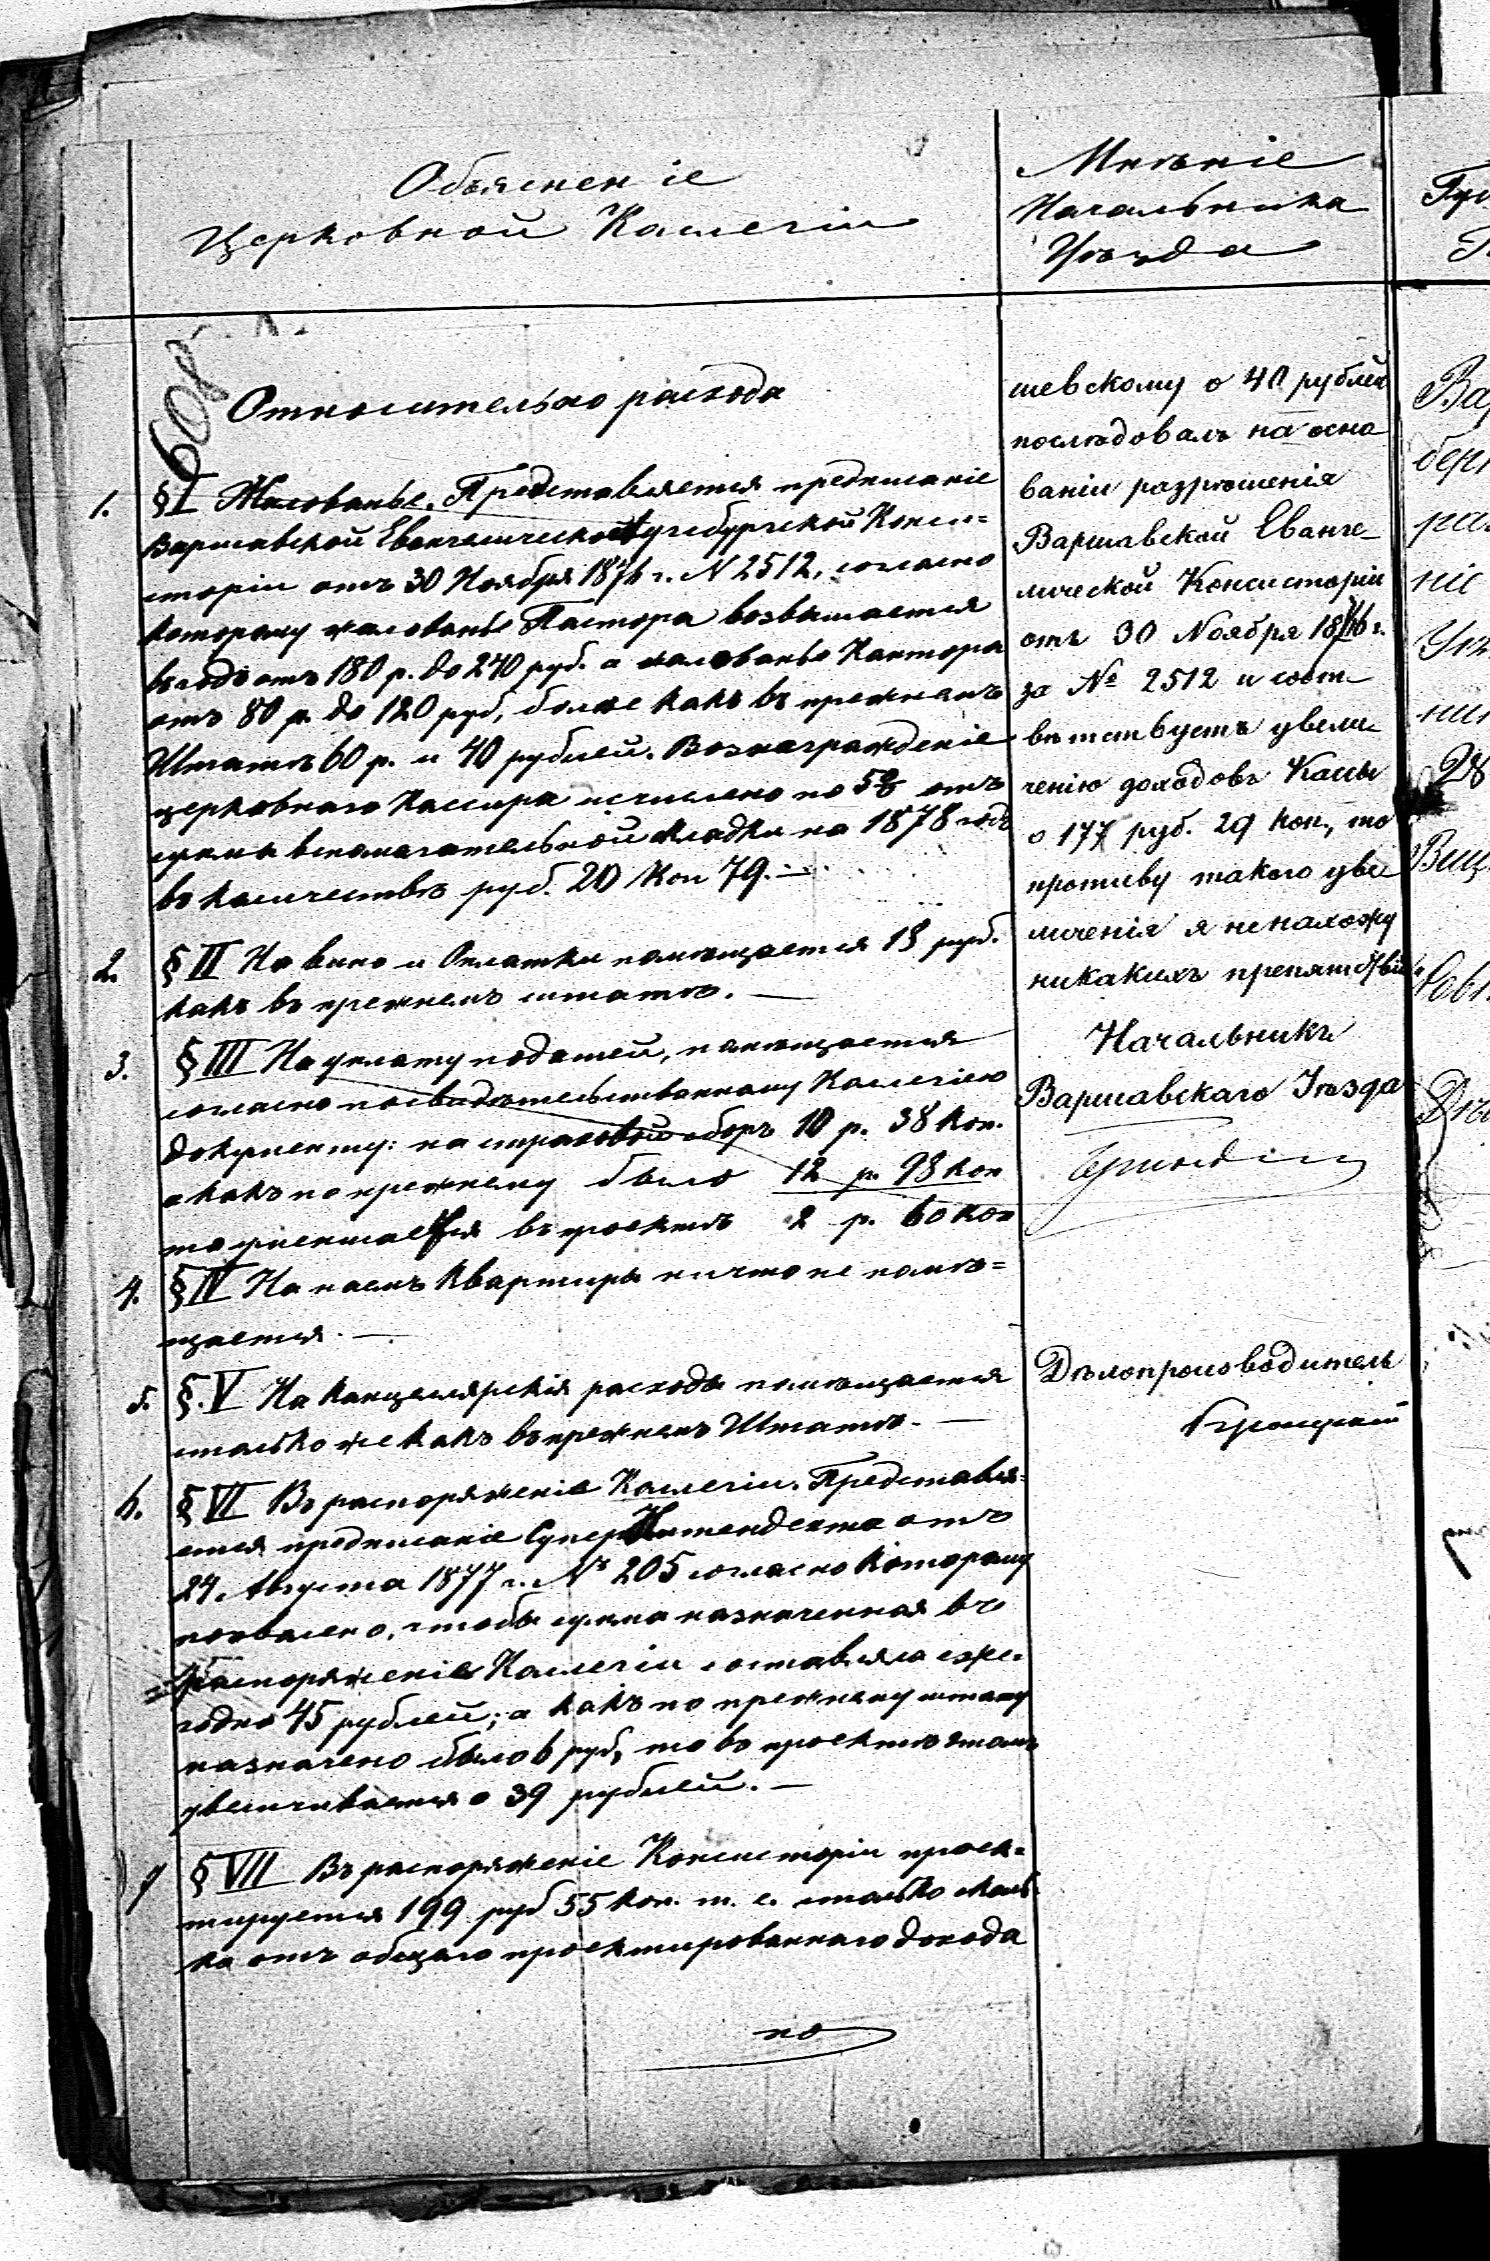 Объясненіе
Церковной Коллегіи
608
Относительно расхода
1. § I Жалованье. Представляется предписаніе
Варшавской Евангелическо Аугсбургской Конси=
сторіи отъ 30 Ноября 1876 г. N 2512, согласно
которому жалованье Пастора возвышается
въ годъ отъ 180 р. до 240 руб. а жалованье Кантора
отъ 80 р. до 120 руб, более какъ въ прежнемъ
Штатѣ 60 р. и 40 рублей. Вознагражденіе
церковнаго Кассира исчислено по 5% отъ
сумма вспомагательной складки на 1878 годъ
въ количествѣ руб. 20 Коп 79. —
2. § II На вино и Оплатки помѣщается 18 руб.
какъ въ прежнемъ штатѣ. —
3. § III На уплату податей, помѣщается
согласно посвидѣтельствованному Коллегіею
документу: на страховой сборъ 10 р. 38 коп.
а какъ по прежнему было 12 р. 98 коп
то уменшается въ проектѣ 2 р. 60 коп
4. § IV На наемъ квартиры ничто не помѣ=
щается. —
5. §. V На канцелярскія расходы помѣщается
столько же какъ въ прежнемъ Штатѣ. —
6. § VI Въ распоряженіе Коллегіи. Представля=
ется предписаніе СуперИнтендента отъ
24 Августа 1877 г. № 205 согласно которому
позволено, чтобы сумма назначенная въ
распоряженіе Коллегіи составляла еже=
годно 45 рублей; а какъ по прежнему штату
назначено было 6 руб, то въ проектѣ этомъ
увеличивается о 39 рублей. —
7 § VII Въ распоряженіе Консисторіи проек=
тируется 199 руб 55 коп. т. е. столько сколь=
ко отъ общаго проектированнаго дохода
по
Мнѣніе
Начальника
Уѣзда
шевскому о 40 рублей
послѣдовалъ на осно
ваніи разрѣшенія
Варшавской Еванге_
лической Консисторіи
отъ 30 Ноября 1876 г.
за № 2512 и соот_
вѣтствуетъ увели
ченію доходовъ Кассы
о 177 руб. 29 коп, то
противу такого уве
личенія я не нахожу
никакихъ препятствій
Начальникъ
Варшавскаго Уѣзда
Дѣлопроизводитель